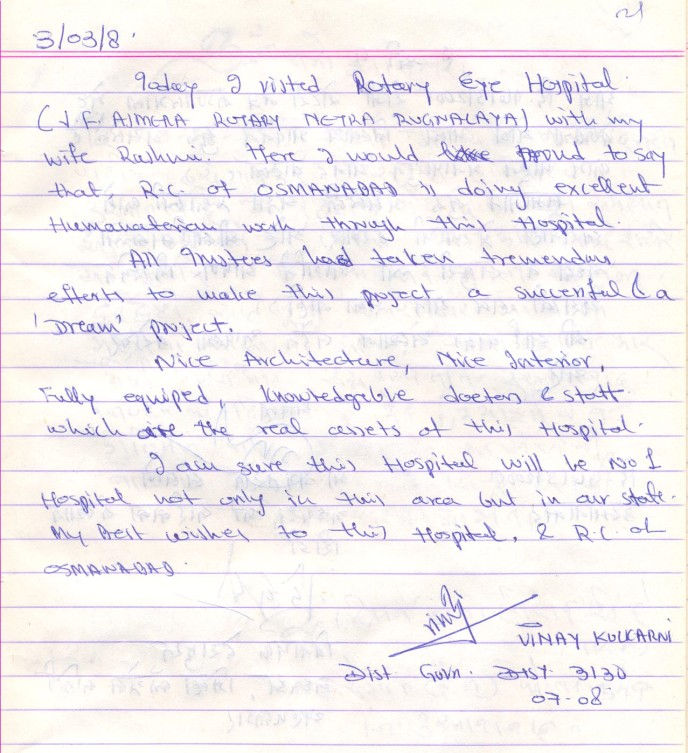 21
3/03/8.
Today I visted Rotary Eye Hospital.
(J.F. AJMERA ROTARY NETRA RUGNALAYA) with my
wife Rashmi. Here I would proud to say
that, R.C. of OSMANABAD is doing excellent
Humanaterian work through this Hospital.
All Trustees had taken tremendus
efforts to make this project a successful & a
'Dream' project.
Nice Architecture, Nice Interior,
Fully equiped, knowledgeble doctors & staff.
which are the real assets of this Hospital.
I am sure this Hospital will be No 1
Hospital not only in this area but in our state.
My Best wishes to this Hospital, & R.C. of
OSMANABAD.
VINAY KULKARNI
Dist Govn. DIST. 3130
07-08